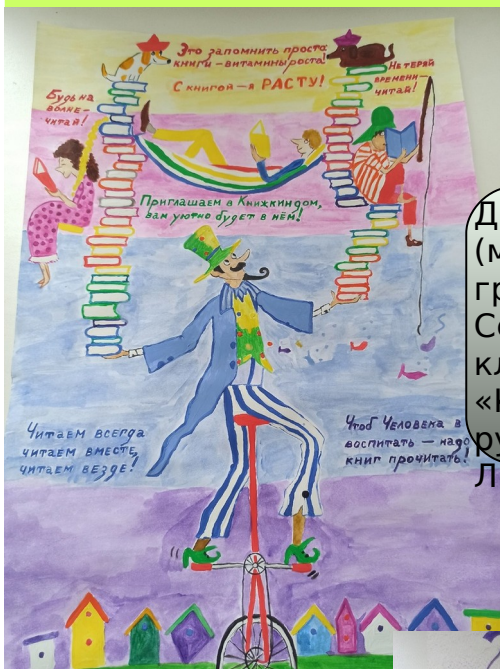 Это запомнить просто
книги – витамины роста!
С книгой – я РАСТУ!
Не теряй
времени –
читай!
Будь на
волне –
читай!
Приглашаем в Книжкин дом,
вам уютно будет в нём!
Читаем всегда
читаем вместе,
читаем везде!
Чтоб Человека в
воспитать – надо
книг прочитать!